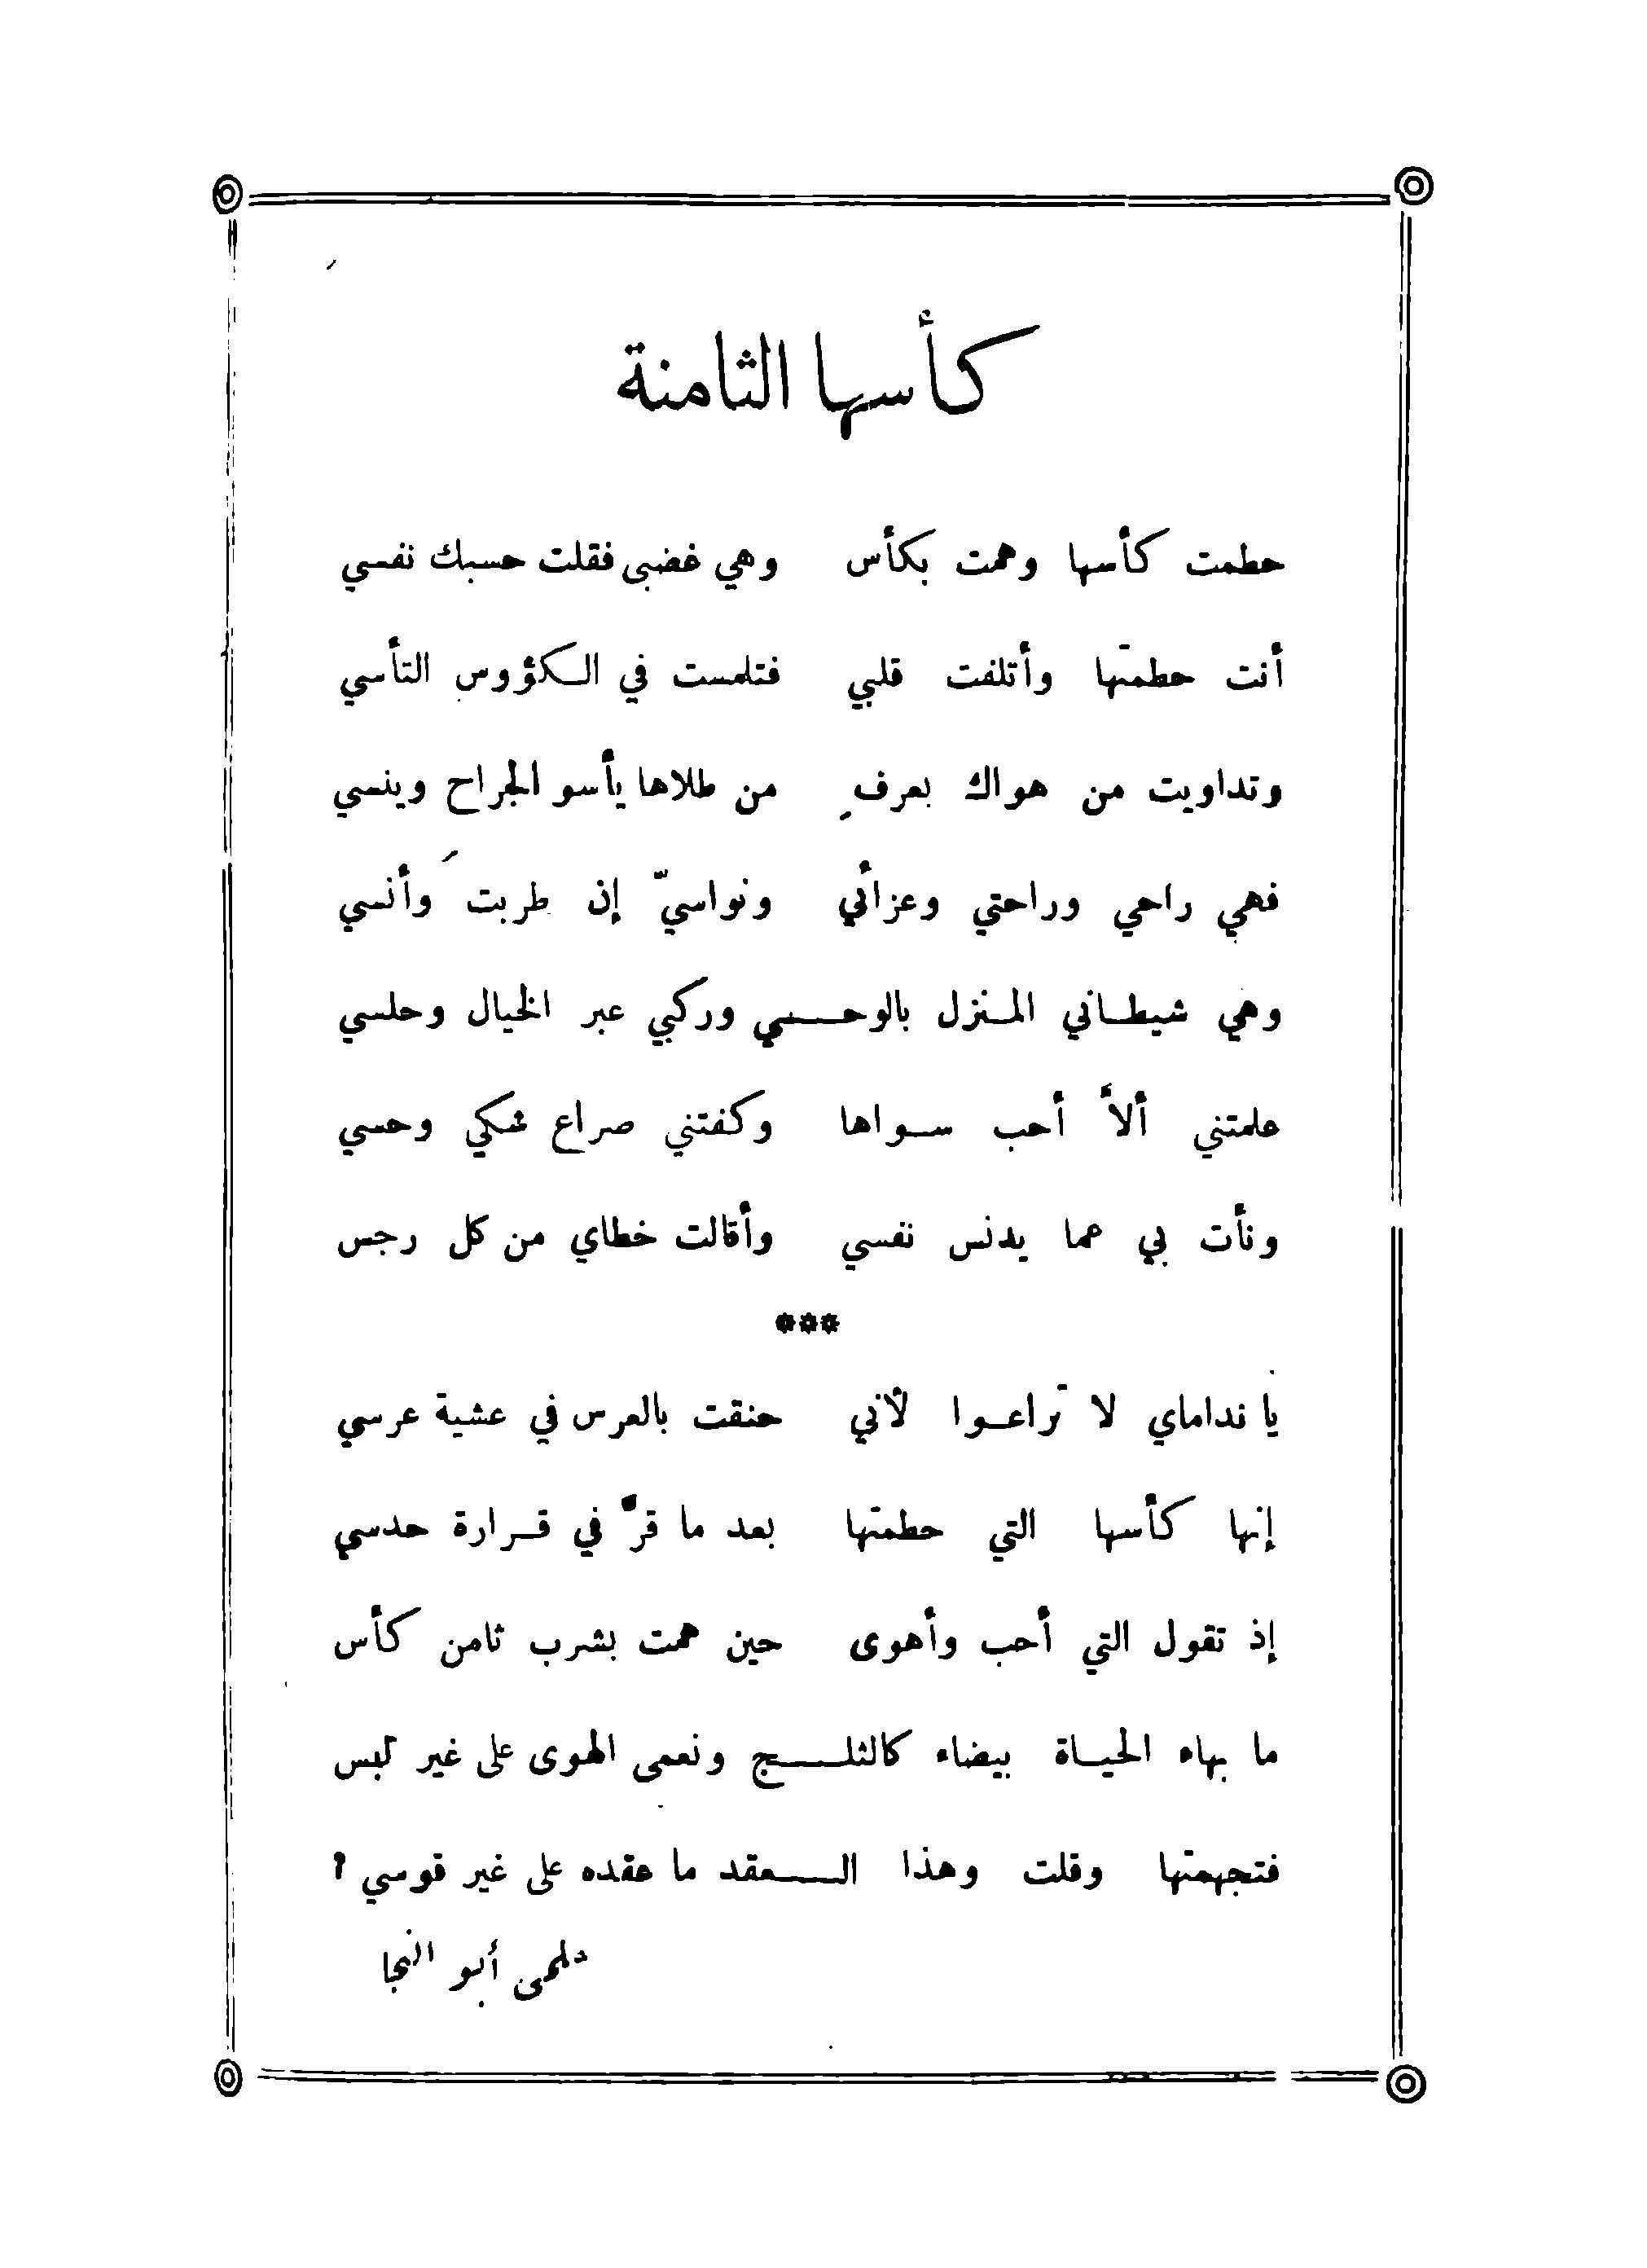 كأسها الثامنة
حطمت كأسها وهمت بكأس وهي غضبى فقلت حسبك نفسي
أنت حطمتها وأتلفت قلبي فتلمست في الكؤوس التأسي
وتداويت من هواك بعرفٍ من طلاها يأسو الجراح وينسي
فهي راحي وراحتي وعزائي ونواسيّ إن طربتَ وأنسي
وهي شيطاني المنزل بالوحي وركبي عبر الخيال وحلسي
علمتني ألاّ أحب سواها وكفتني صراع شكي وحسي
ونأت بي عما يدنس نفسي وأقالت خطاي من كل رجس
***
يا نداماي لا تراعوا لأني حنقت بالعرس في عشية عرسي
إنها كأسها التي حطمتها بعد ما قرّ في قرارة حدسي
إذ تقول التي أحب وأهوى حين همت بشرب ثامن كأس
ما بهاء الحياة بيضاء كالثلج ونعمى الهوى على غير لبس
فتجهمتها وقلت وهذا العقد ما عقده على غير قوسي ؟
أبو النجا